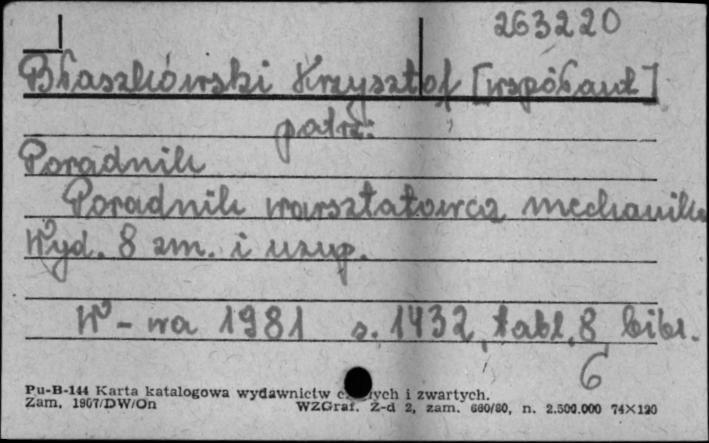 263220
Błaszkowski Krzysztof [współaut]
patrz:
Poradnik
Poradnik warsztatowca mechanika
Wyd. 8 zm. i uzup.
W-wa 1981 s. 1432, tabl. 8, bibl.
6
Pu-B-144 Karta katalogowa wydawnictw ciągłych i zwartych.
Zam. 1907/DW/On WZGraf. Z-d 2, zam. 660/80, n. 2.500.000 74×120